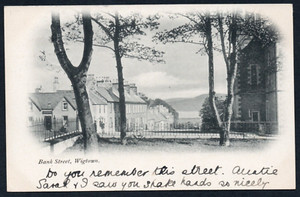 Bank Street, Wigtown.
Do you remember this street. Auntie
Sarah & I saw you shake hands so nicely